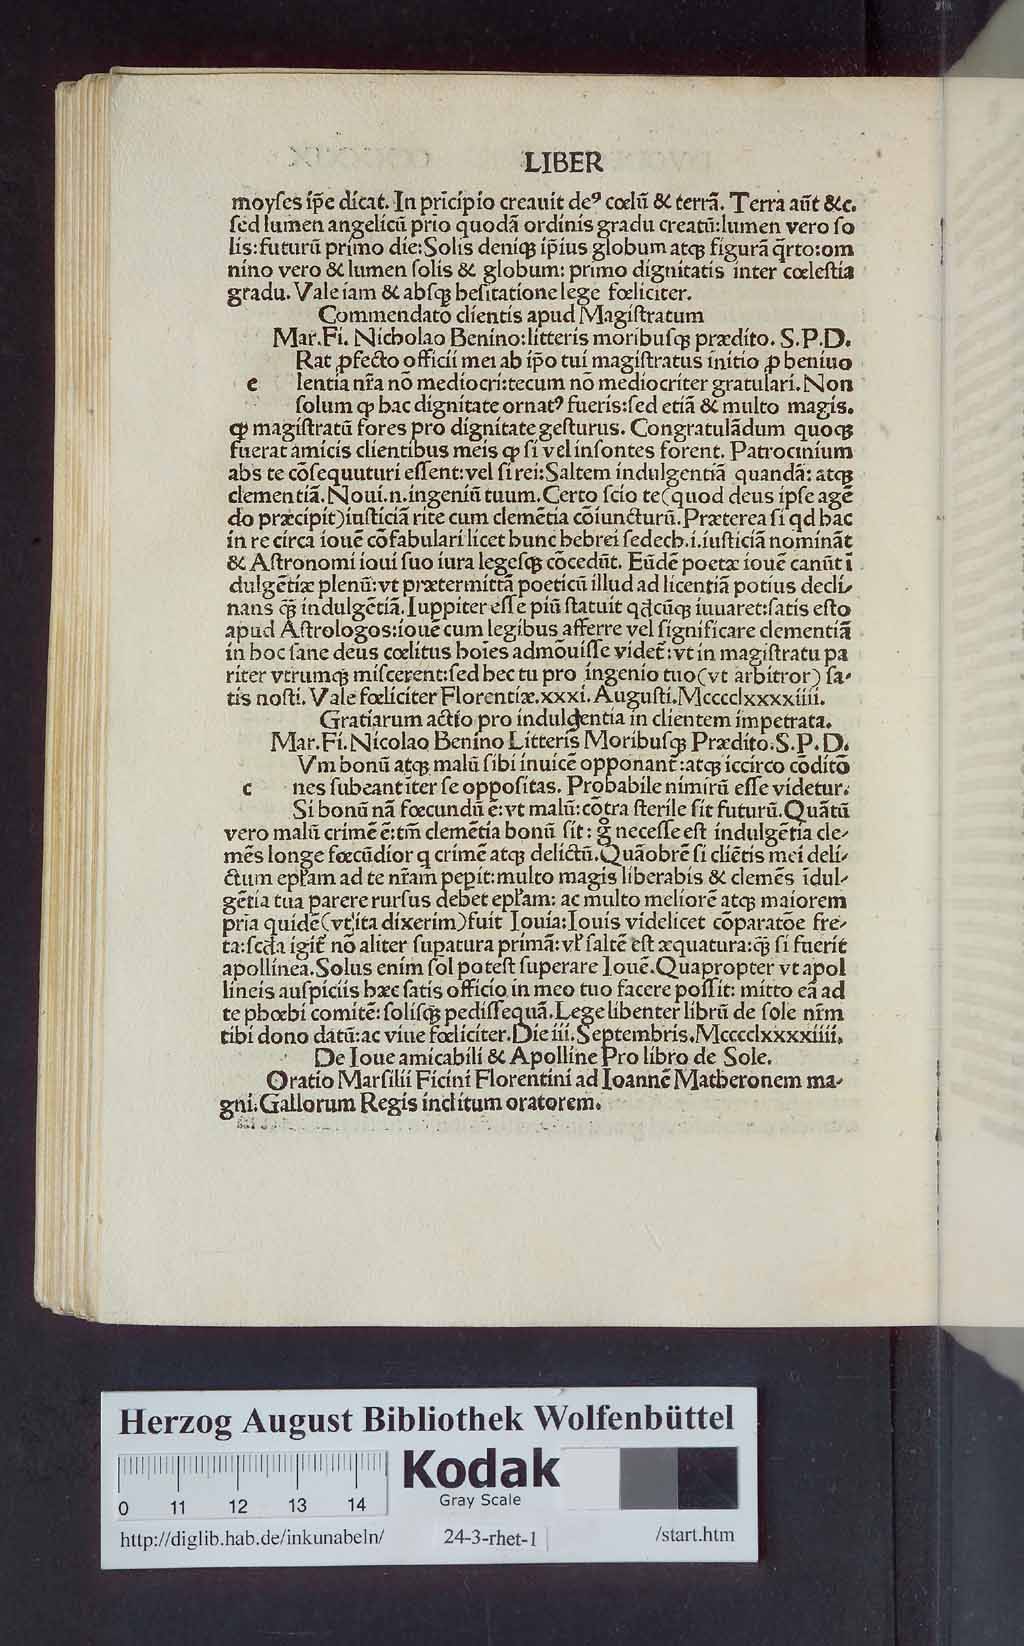 LIBER
moyſes ip̄e dicat. In pricipio creauit deꝰ cœlū & terrā. Terra aūt &c.
ſed lumen angelicū prio quodā ordinis gradu creatū: lumen vero ſo
lis: futurū primo die: Solis deniqꝫ ip̄ius globum atqꝫ figurā q̄rto: om
nino vero & lumen ſolis & globum: primo dignitatis inter cœleſtia
gradu. Vale iam & abſqꝫ heſitatione lege fœliciter.
Commendatō clientis apud Magiſtratum
Mar. Fi. Nicholao Benino: litteris moribuſqꝫ prædito. S.P.D.
Rat ꝓfecto officii mei ab ip̄o tui magiſtratus initio ꝓ beniuo
e lentia nr̄a nō mediocri: tecum nō mediocriter gratulari. Non
ſolum ꝙ hac dignitate ornatꝰ fueris: ſed etiā & multo magis.
ꝙ magiſtratū fores pro dignitate geſturus. Congratulādum quoqꝫ
fuerat amicis clientibus meis ꝙ ſi vel inſontes forent. Patrocinium
abs te cōſequuturi eſſent: vel ſi rei: Saltem indulgentiā quandā: atqꝫ
clementiā. Noui .n. ingeniū tuum. Certo ſcio te (quod deus ipſe agē
do præcipit) iuſticiā rite cum clemētia cōiuncturū. Præterea ſi qd hac
in re circa iouē cōfabulari licet hunc hebrei ſedech .i. iuſticiā nomināt
& Aſtronomi ioui ſuo iura legeſqꝫ cōcedūt. Eūdē poetæ iouē canūt ī
dulgētiæ plenū: vt prætermittā poeticū illud ad licentiā potius decli⸗
nans q̄ꝫ indulgētiā. Iuppiter eſſe piū ſtatuit qdcūqꝫ iuuaret: ſatis eſto
apud Aſtrologos: iouē cum legibus afferre vel ſignificare clementiā
in hoc ſane deus cœlitus hoīes admōuiſſe videt̄: vt in magiſtratu pa
riter vtrumqꝫ miſcerent: ſed hec tu pro ingenio tuo (vt arbitror) ſa⸗
tis noſti. Vale fœliciter Florentiæ. xxxi. Auguſti. Mcccclxxxxiiii.
Gratiarum actio pro indulgentia in clientem impetrata.
Mar. Fi. Nicolao Benino Litteris Moribuſqꝫ Prædito. S.P.D.
Vm bonū atqꝫ malū ſibi inuicē opponant̄: atqꝫ iccirco cōditō
c nes ſubeant iter ſe oppoſitas. Probabile nimirū eſſe videtur.
Si bonū nā fœcundū ē: vt malū: cōtra ſterile ſit futurū. Quātū
vero malū crimē ē: tm̄ clemētia bonū ſit: g̊ neceſſe eſt indulgētia cle⸗
mēs longe fœcūdior q crimē atqꝫ delictū. Quāobrē ſi cliētis mei deli⸗
ctum epl̄am ad te nr̄am peꝑit: multo magis liberabis & clemēs īdul⸗
gētia tua parere rurſus debet epl̄am: ac multo meliorē atqꝫ maiorem
pria quidē (vt ita dixerim) fuit Iouia: Iouis videlicet cōparatōe fre⸗
ta: ſcd̄a igit̄ nō aliter ſupatura primā: vl̄ ſaltē eſt æquatura: q̄ꝫ ſi fuerit
apollinea. Solus enim ſol poteſt ſuperare Iouē. Quapropter vt apol
lineis auſpiciis hæc ſatis officio in meo tuo facere poſſit: mitto eā ad
te phœbi comitē: ſoliſqꝫ pediſſequā. Lege libenter librū de ſole nr̄m
tibi dono datū: ac viue fœliciter. Die iii. Septembris. Mcccclxxxxiiii.
De Ioue amicabili & Apolline Pro libro de Sole.
Oratio Marſilii Ficini Florentini ad Ioannē Matheronem ma⸗
gni. Gallorum Regis inclitum oratorem.
Herzog August Bibliothek Wolfenbüttel
Kodak
Gray Scale
0 11 12 13 14
http://diglib.hab.de/inkunabeln/ 24-3-rhet-1 /start.htm